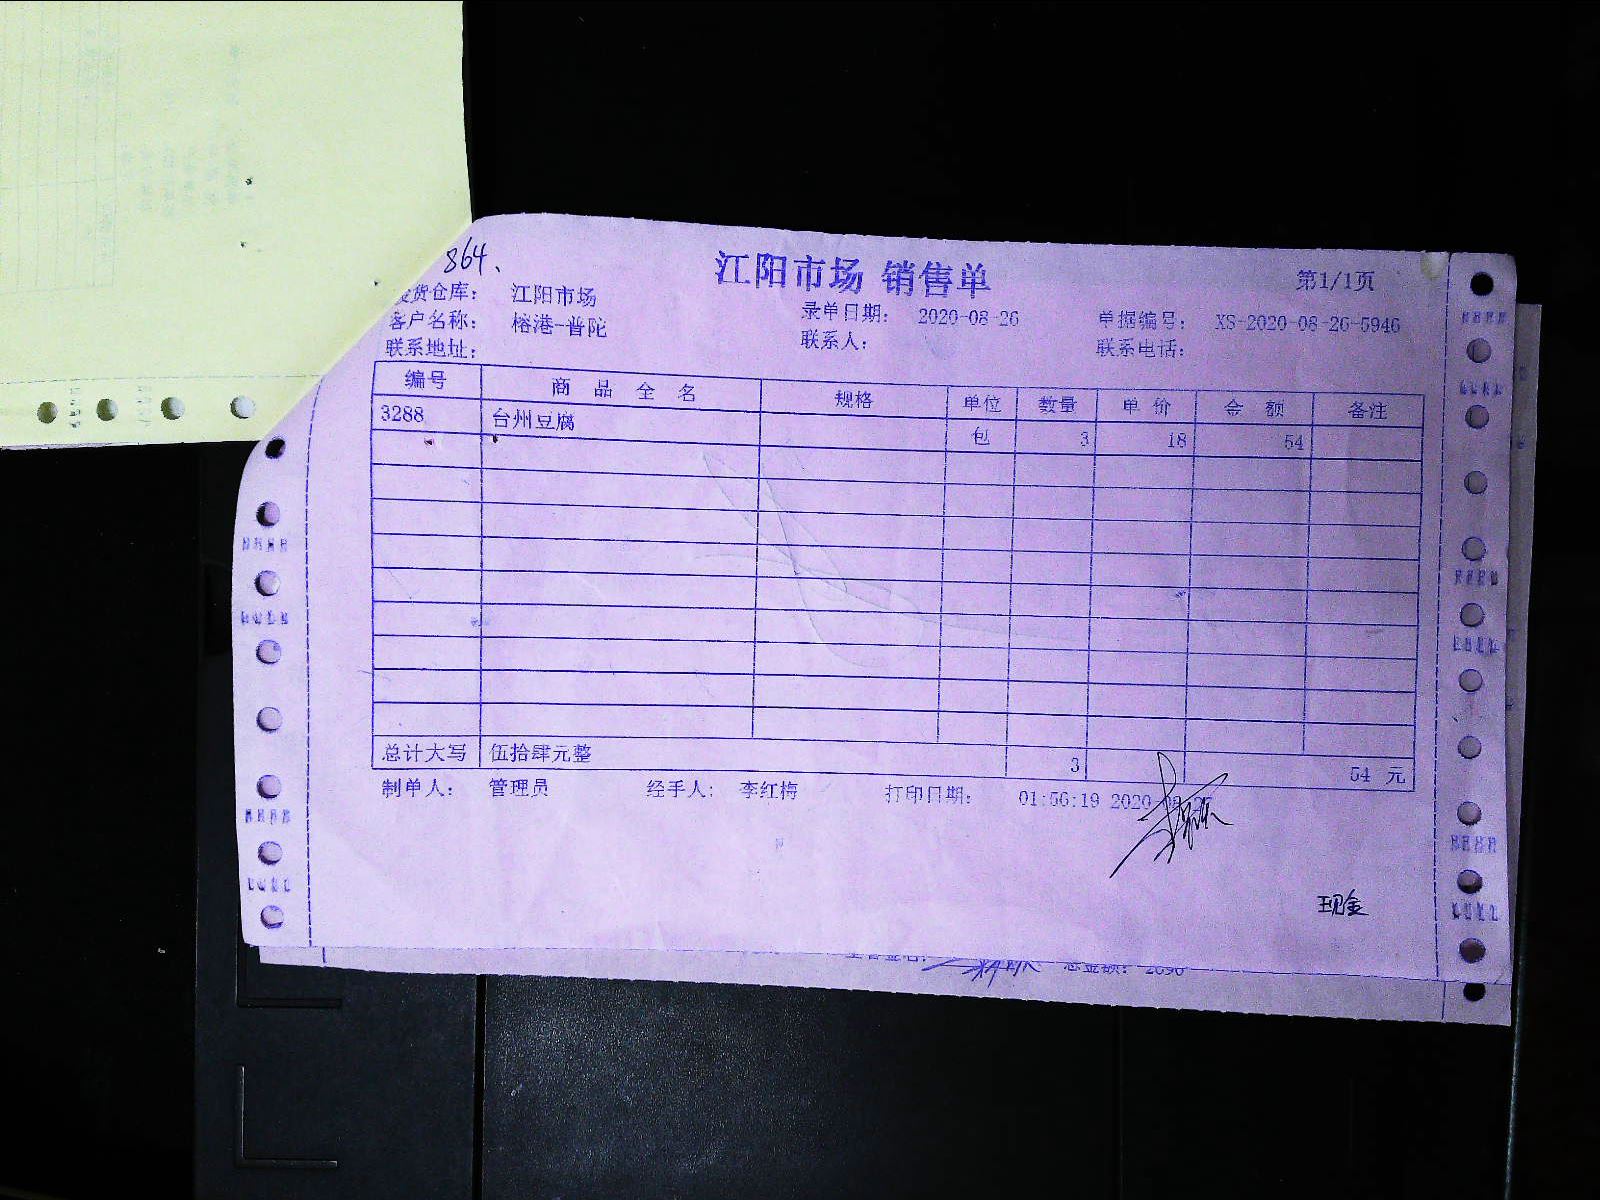 864.
江阳市场 销售单
第1/1页
货仓库: 江阳市场
录单日期: 2020-08-26
单据编号: XS-2020-08-26-5946
客户名称: 榕港-普陀
联系人:
联系电话:
联系地址:
编号 商品全名 规格 单位 数量 单价 金额 备注
3288 台州豆腐 包 3 18 54
总计大写 伍拾肆元整 3 54 元
制单人: 管理员 经手人: 李红梅 打印日期: 01:56:19 2020
现金
总金额: 2690